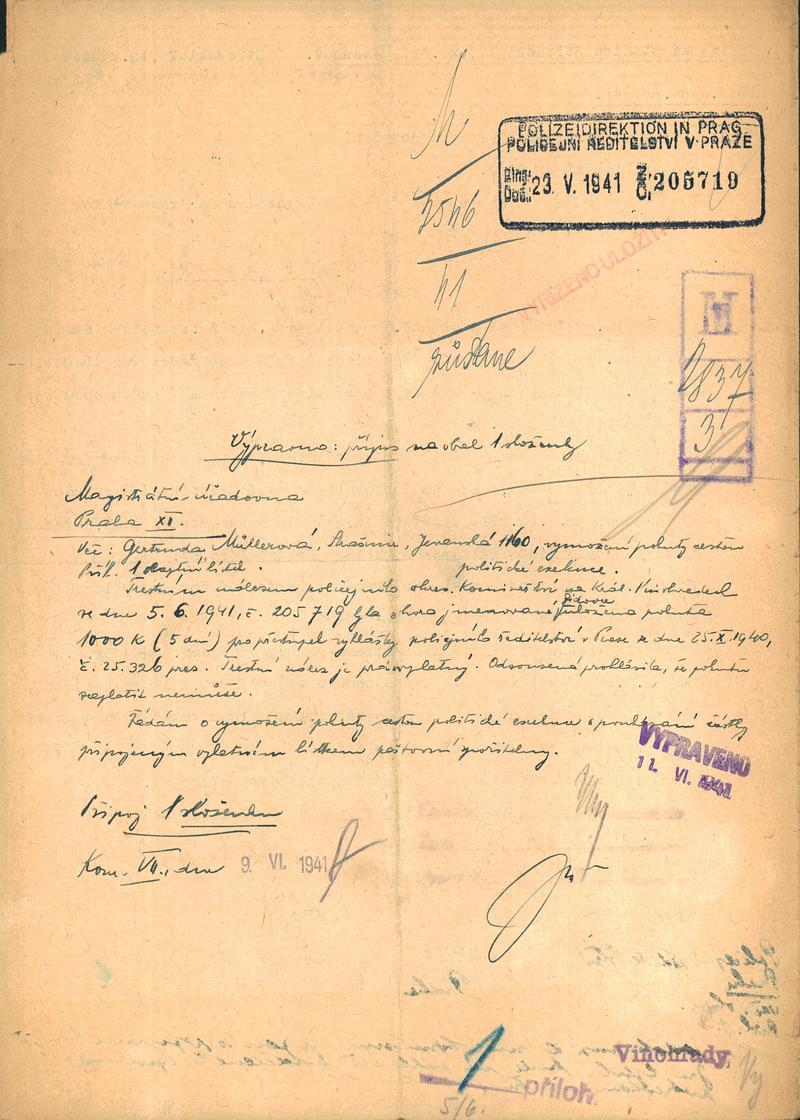 POLIZEIDIREKTION IN PRAG
POLICEJNÍ ŘEDITELSTVÍ V PRAZE
23. V. 1941 205719
2546
41
VYŘÍZENO ULOŽIT
zůstane
H
2837
3
Výpravna: přípis na obál 1 složenky
Magistrátní úřadovna
Praha XI.
Věc: Gertruda Müllerová, Strašnice, 1160, vymožení pokuty cestou
Příl. 1 politické exekuce.
Trestním nálezem policejního okres. komisařství na Král. Vinohradech
ze dne 5. 6. 1941, č. 205719 byla shora jmenované židovce uložena pokuta
1000 K (5 dní) pro přestupek vyhlášky policejního ředitelství v Praze ze dne 25. X. 1940,
č. 25.326 pres. Trestní nález je právoplatný. Odsouzená prohlásila, že pokutu
zaplatit nemůže.
Žádám o vymožení pokuty cestou politické exekuce a poukázání částky
připojeným vplatním lístkem poštovní spořitelny.
VYPRAVENO
11. VI. 1941
Připoj 1 složenku
Kom. VII., dne 9. VI. 1941
Vinohrady,
1 příloh.
5/6.